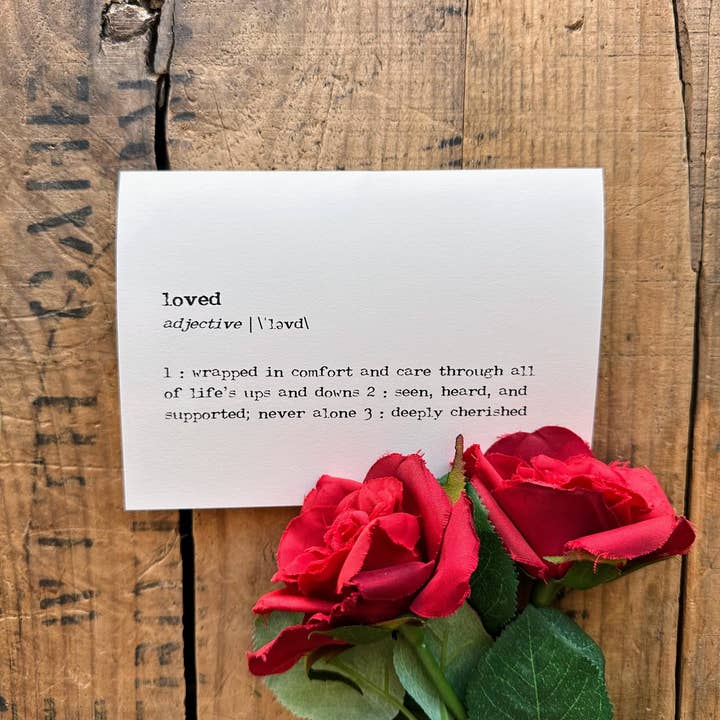 loved
adjective | \ˈləvd\
1 : wrapped in comfort and care through all
of life's ups and downs 2 : seen, heard, and
supported; never alone 3 : deeply cherished